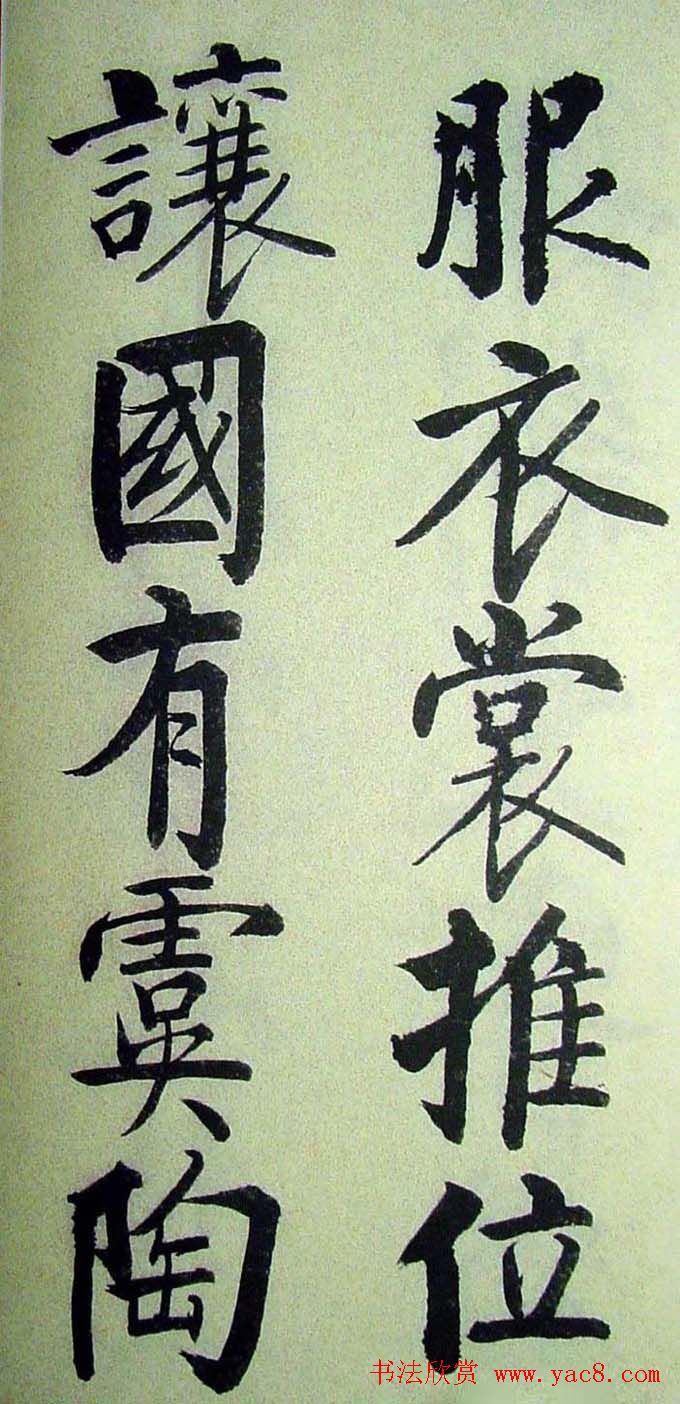 服衣裳推位
讓國有虞陶
书法欣赏 www.yac8.com